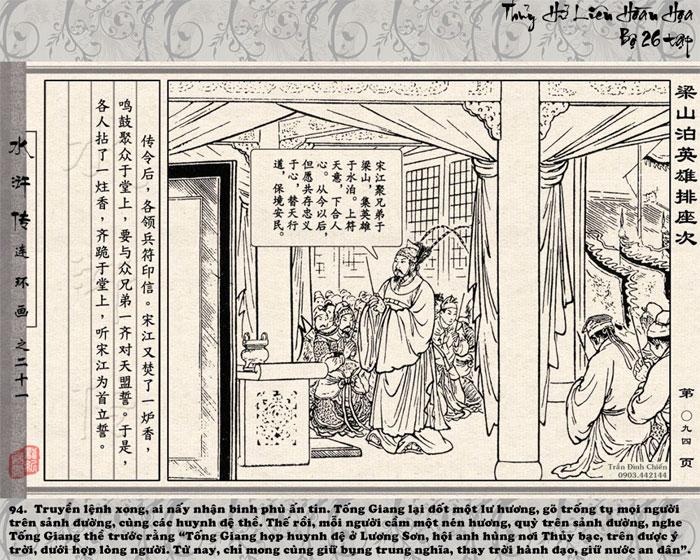 Thủy Hử Liên Hoàn Họa
Bộ 26 tập
水浒传连环画之二十一
梁山泊英雄排座次
第〇九四页
传令后，各领兵符印信。宋江又焚了一炉香，
鸣鼓聚众于堂上，要与众兄弟一齐对天盟誓。于是，
各人拈了一炷香，齐跪于堂上，听宋江为首立誓。
宋江聚兄弟于
梁山，集英雄
于水泊。上符
天意，下合人
心。从今以后，
但愿共存忠义
于心，替天行
道，保境安民。
Trần Đình Chiến
0903.442144
94. Truyền lệnh xong, ai nấy nhận binh phù ấn tín. Tống Giang lại đốt một lư hương, gõ trống tụ mọi người
trên sảnh đường, cùng các huynh đệ thề. Thế rồi, mỗi người cầm một nén hương, quỳ trên sảnh đường, nghe
Tống Giang thề trước rằng “Tống Giang họp huynh đệ ở Lương Sơn, hội anh hùng nơi Thủy bạc, trên được ý
trời, dưới hợp lòng người. Từ nay, chỉ mong cùng giữ bụng trung nghĩa, thay trời hành đạo, giữ nước an dân”.